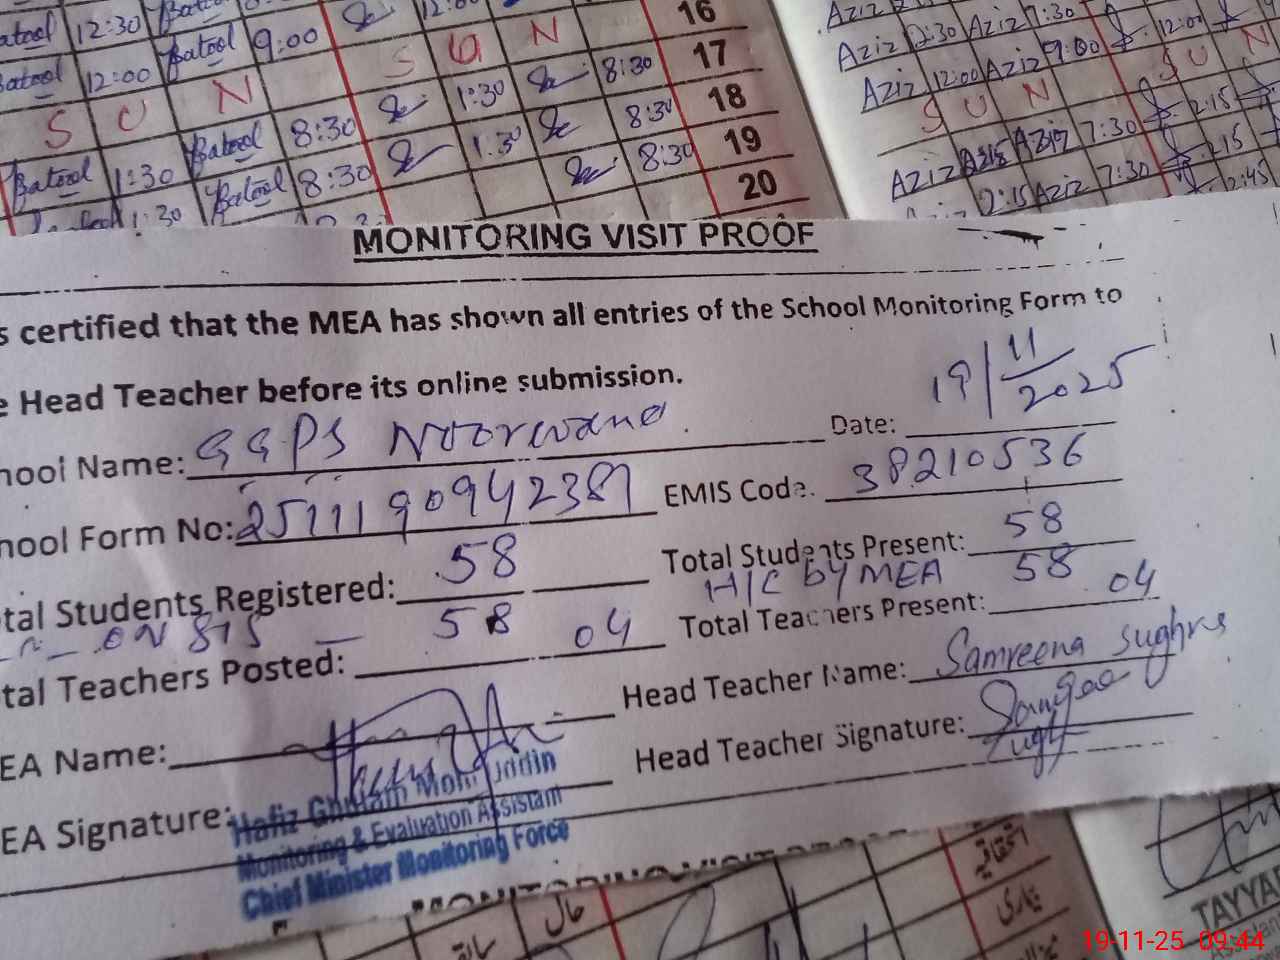 atool 12:30 Batool
Batool 12:00 Batool 9:00
S U N
Batool 1:30 Batool 8:30
1:30 Batool 8:30
S U N 16
1:30 8:30 17
1:30 8:30 18
8:30 19
20
Aziz
Aziz 12:30 Aziz 7:30
Aziz 12:00 Aziz 9:00 12:00
S U N S U N
Aziz Aziz 7:30 2:15
Aziz 2:15 Aziz 7:30 2:15
2:45
MONITORING VISIT PROOF
s certified that the MEA has shown all entries of the School Monitoring Form to
e Head Teacher before its online submission.
hool Name: GGPS Noorwana Date: 19/11/2025
hool Form No: 2511190942387 EMIS Code. 38210536
tal Students Registered: 58 Total Students Present: 58
on SIS 58 H/C by MEA 58
tal Teachers Posted: 04 Total Teachers Present: 04
EA Name: Head Teacher Name: Samreena Sughra
EA Signature: Head Teacher Signature:
Hafiz Ghulam Mohi Uddin
Monitoring & Evaluation Assistant
Chief Minister Monitoring Force
حال
بیماری
TAYYA
19-11-25 09:44